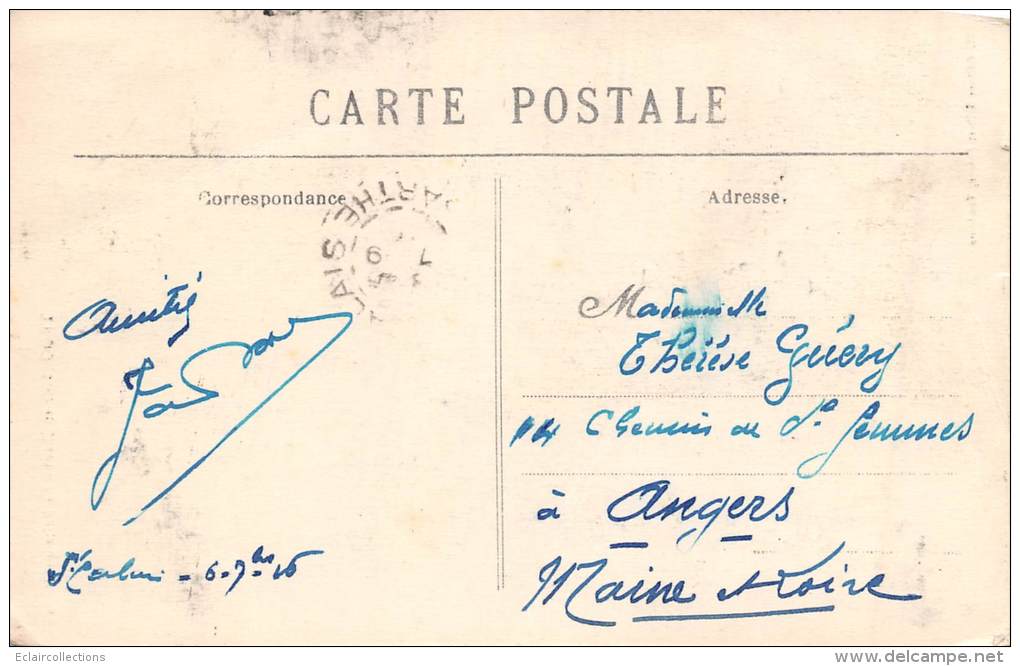 CARTE POSTALE
Correspondance
Adresse.
SARTHE
Amitié
Mademoiselle
Thérèse Guéry
Chemin de Ste Gemmes
à Angers
Maine et Loire
Eclaircollections
© delcampe.net